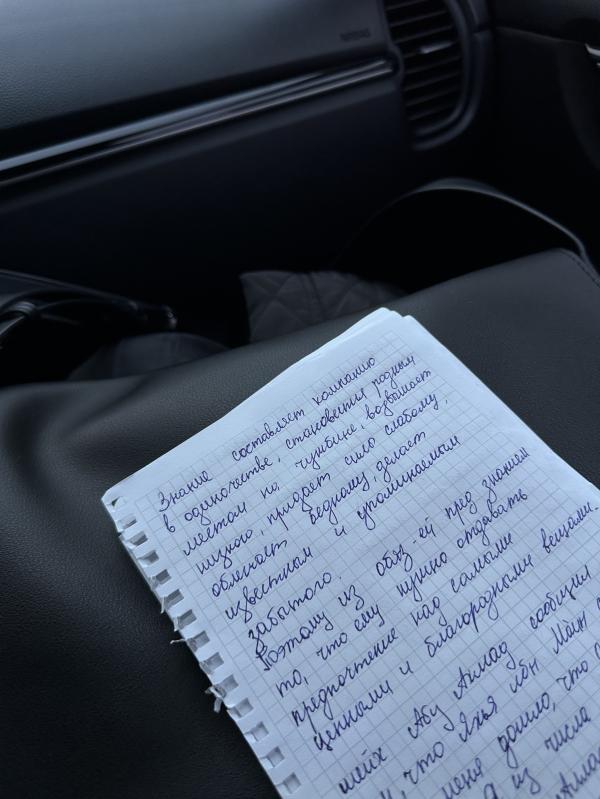 AIRBAG
Знание составляет компанию
в одиночестве, становится родным
местом на чужбине, возвышает
низкого, придаёт силы слабому,
облегчает бедному, делает
известным и упоминаемым
забытого.
Поэтому из обяз-ей пред знанием
то, что ему нужно отдавать
предпочтение над самыми
ценными и благородными вещами.
шейх Абу Ахмад сообщил
, что Яхья ибн Маин
меня дошло, что
из числа